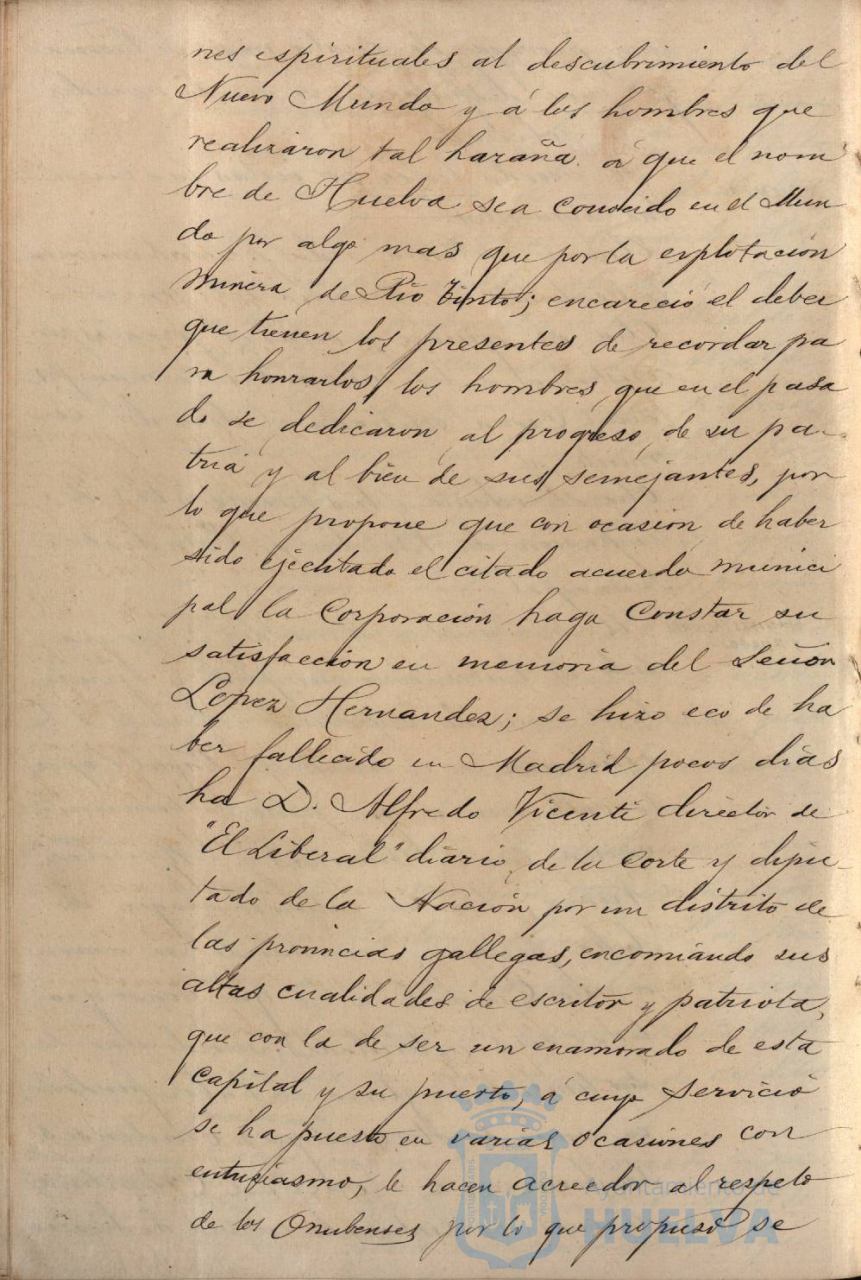 nes espirituales al descubrimiento del
Nuevo Mundo y á los hombres que
realizaron tal hazaña á que el nom
bre de Huelva sea conocido en el Mun
do por algo mas que por la explotación
minera de Rio Tinto; encareció el deber
que tienen los presentes de recordar pa
ra honrarlos, los hombres que en el pasa
do se dedicaron al progreso de su pa-
tria y al bien de sus semejantes, por
lo que propone que con ocasión de haber
sido ejecutado el citado acuerdo munici
pal la Corporación haga constar su
satisfacción en memoria del Señor
Lopez Hernandez; se hizo eco de ha
ber fallecido en Madrid pocos dias
ha D. Alfredo Vicenti director de
"El Liberal" diario de la Corte y dipu-
tado de la Nación por un distrito de
las provincias gallegas, encomiando sus
altas cualidades de escritor y patriota,
que con la de ser un enamorado de esta
capital y su puerto, á cuyo servicio
se ha puesto en varias ocasiones con
entusiasmo, le hacen acreedor al respeto
de los Onubenses por lo que propuso se
Ayuntamiento de
HUELVA